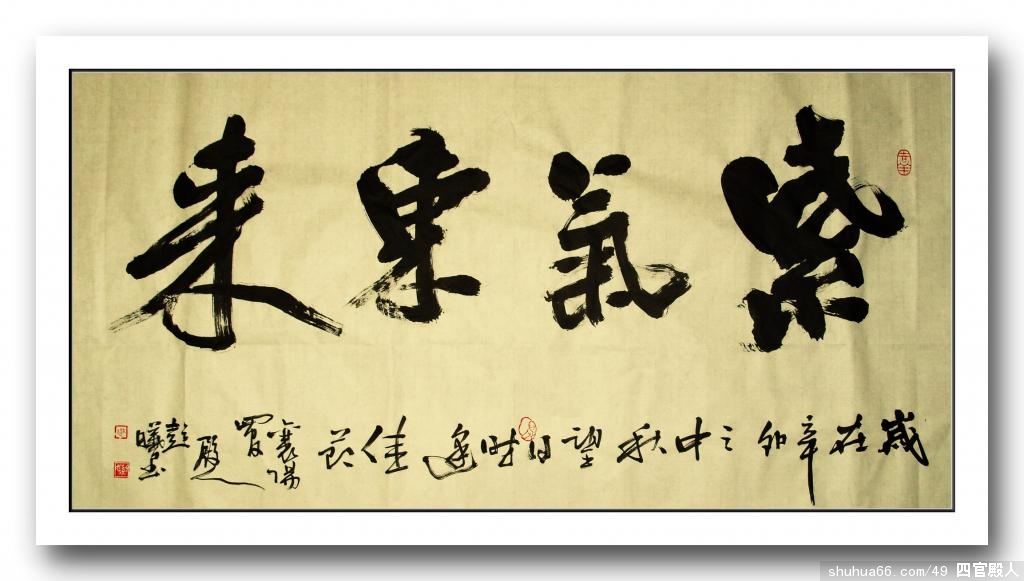 紫氣東來
歲在辛卯之中秋望日時逢佳節
襄陽
四官
殿人
彭
曦書
shuhua66.com/49 四官殿人